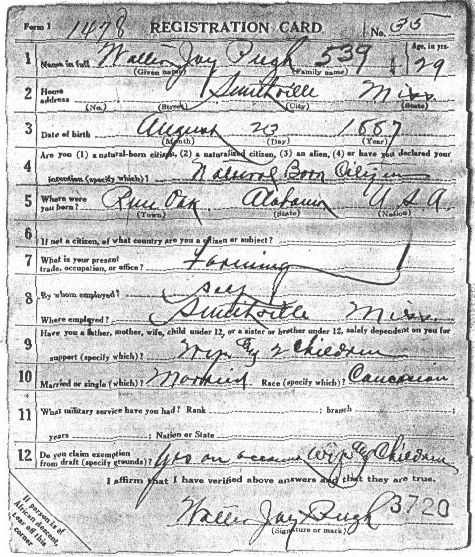 Form 1 1478 REGISTRATION CARD No. 35
1 Name in full Walter Jay Pugh 539 Age, in yrs. 29
(Given name) (Family name)
2 Home address Smithville Miss.
(No.) (Street) (City) (State)
3 Date of birth August 23 1887
(Month) (Day) (Year)
4 Are you (1) a natural-born citizen, (2) a naturalized citizen, (3) an alien, (4) or have you declared your
intention (specify which)? Natural Born Citizen
5 Where were you born? Oak Alabama U S A.
(Town) (State) (Nation)
6 If not a citizen, of what country are you a citizen or subject?
7 What is your present trade, occupation, or office? Farming
8 By whom employed? self
Where employed? Smithville Miss.
9 Have you a father, mother, wife, child under 12, or a sister or brother under 12, solely dependent on you for
support (specify which)? Wife & 2 Children
10 Married or single (which)? Married Race (specify which)? Caucasian
11 What military service have you had? Rank ; branch
years ; Nation or State
12 Do you claim exemption from draft (specify grounds)? Yes on account Wife & Children
I affirm that I have verified above answers and that they are true.
Walter Jay Pugh 3720
(Signature or mark)
If person is of
African descent,
tear off this
corner.